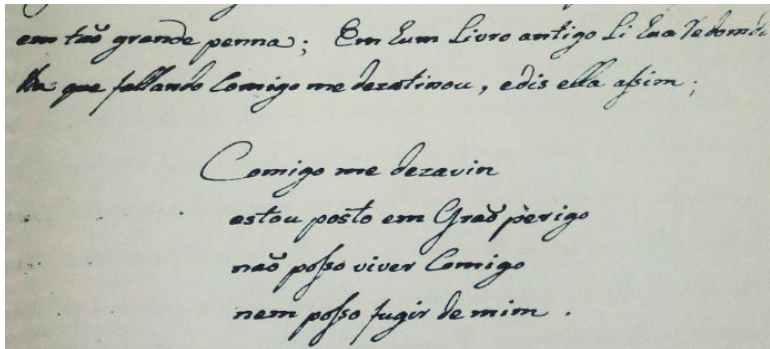 em taõ grande penna; Em hum Livro antigo Li hua Redomdi
lha que fallando Comigo me dezatinou, e dis ella assim;
Comigo me dezavin
estou posto em Graõ perigo
naõ posso viver Comigo
nem posso fugir de mim.